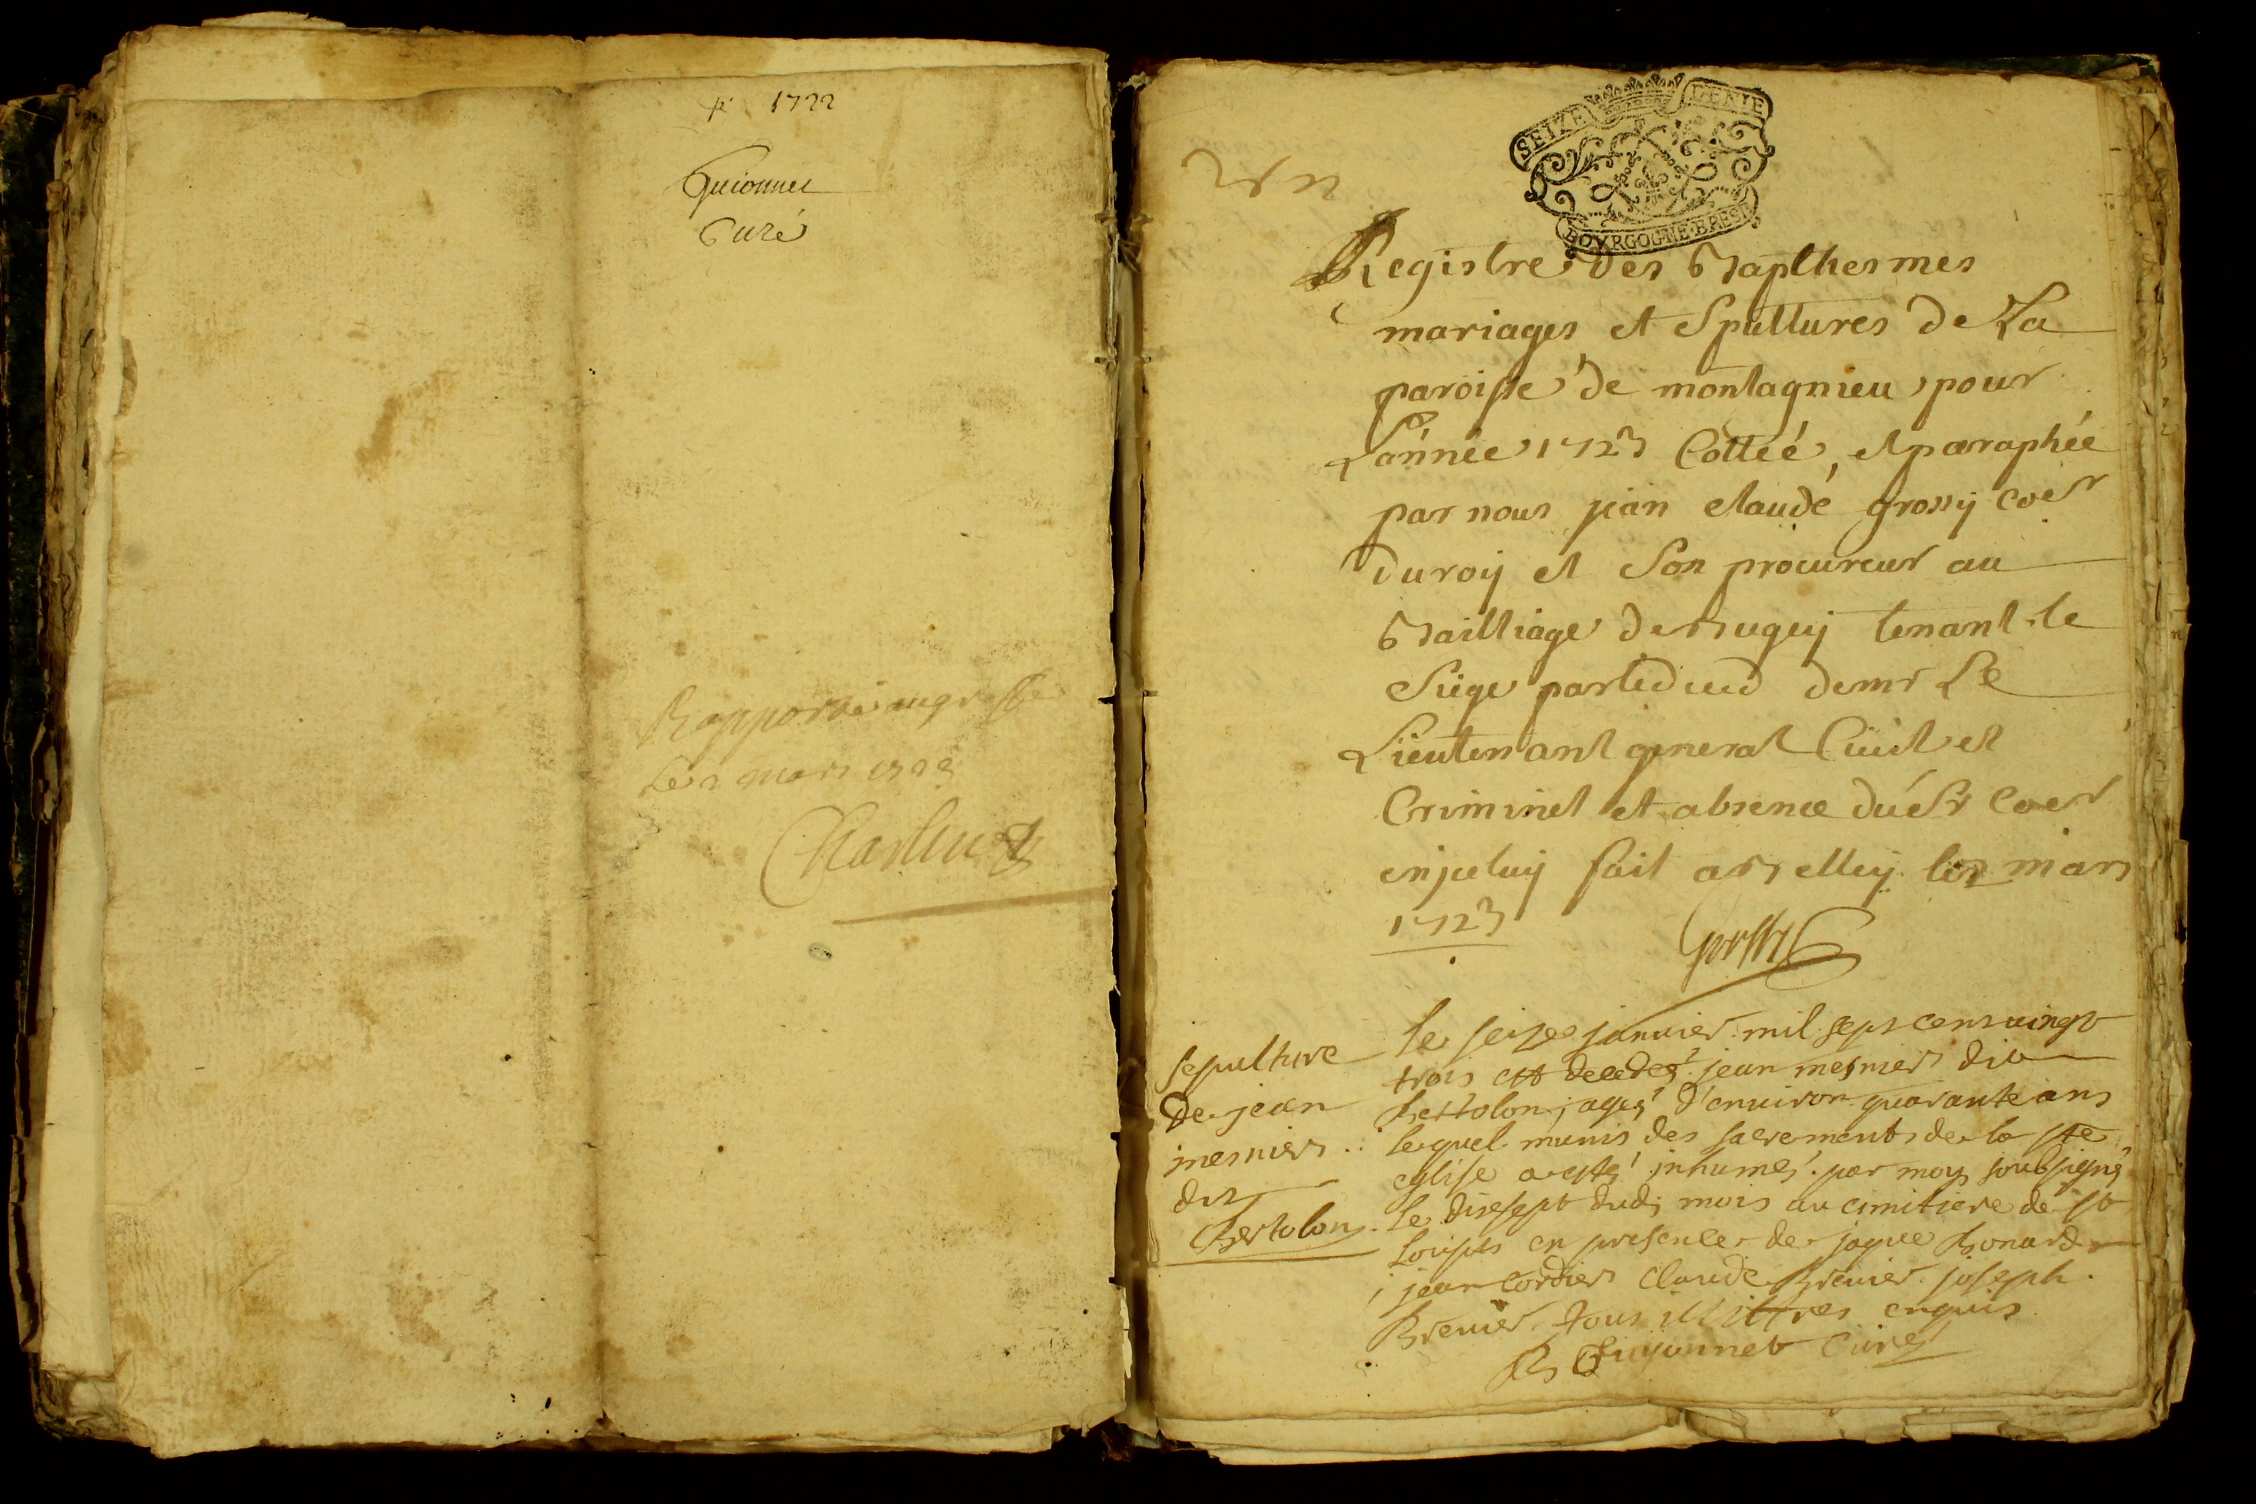 1722
Guionnet
Curé
Rapporté au greffe
Le 2 mars 1723
SEIZE DENIE
BOVRGOGNE·BRESE
Un
Registre des Bapthesmes
mariages et Spultures de La
paroisse de montagnieu pour
L'année 1723 Cottéé, et paraphée
par nous jean claude grossy coer
du roy et Son procureur au
Bailliage de Bugey tenant le
Siege par le deced de mr Le
Lieutenant general Ciuil et
Criminel et absence du Sr Coer
en jceluy fait a Belley le 2 mars
1723
Grossy
Sepulture
de jean
mesnier
dit
Bertolon
le seize januier mil sept cent uingt
trois est decedez jean mesnier dit
bertolon, agez d'enuiron quarante ans
lequel munis des sacrements de la ste
eglise a estez jnhumez par moy soubsignez
le disesept dudi mois au cimitiere de st
en presence de jaque bonard
jean Cordier Claude Breuier joseph
Breuier tous illittres enquis
B Guyonnet Curez